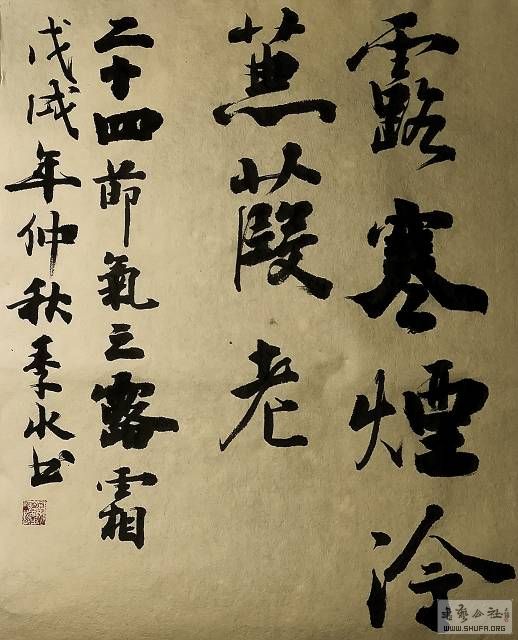 露寒煙冷
蒹葭老
二十四節氣之露霜
戊戌年仲秋季水书
WWW.SHUFA.ORG